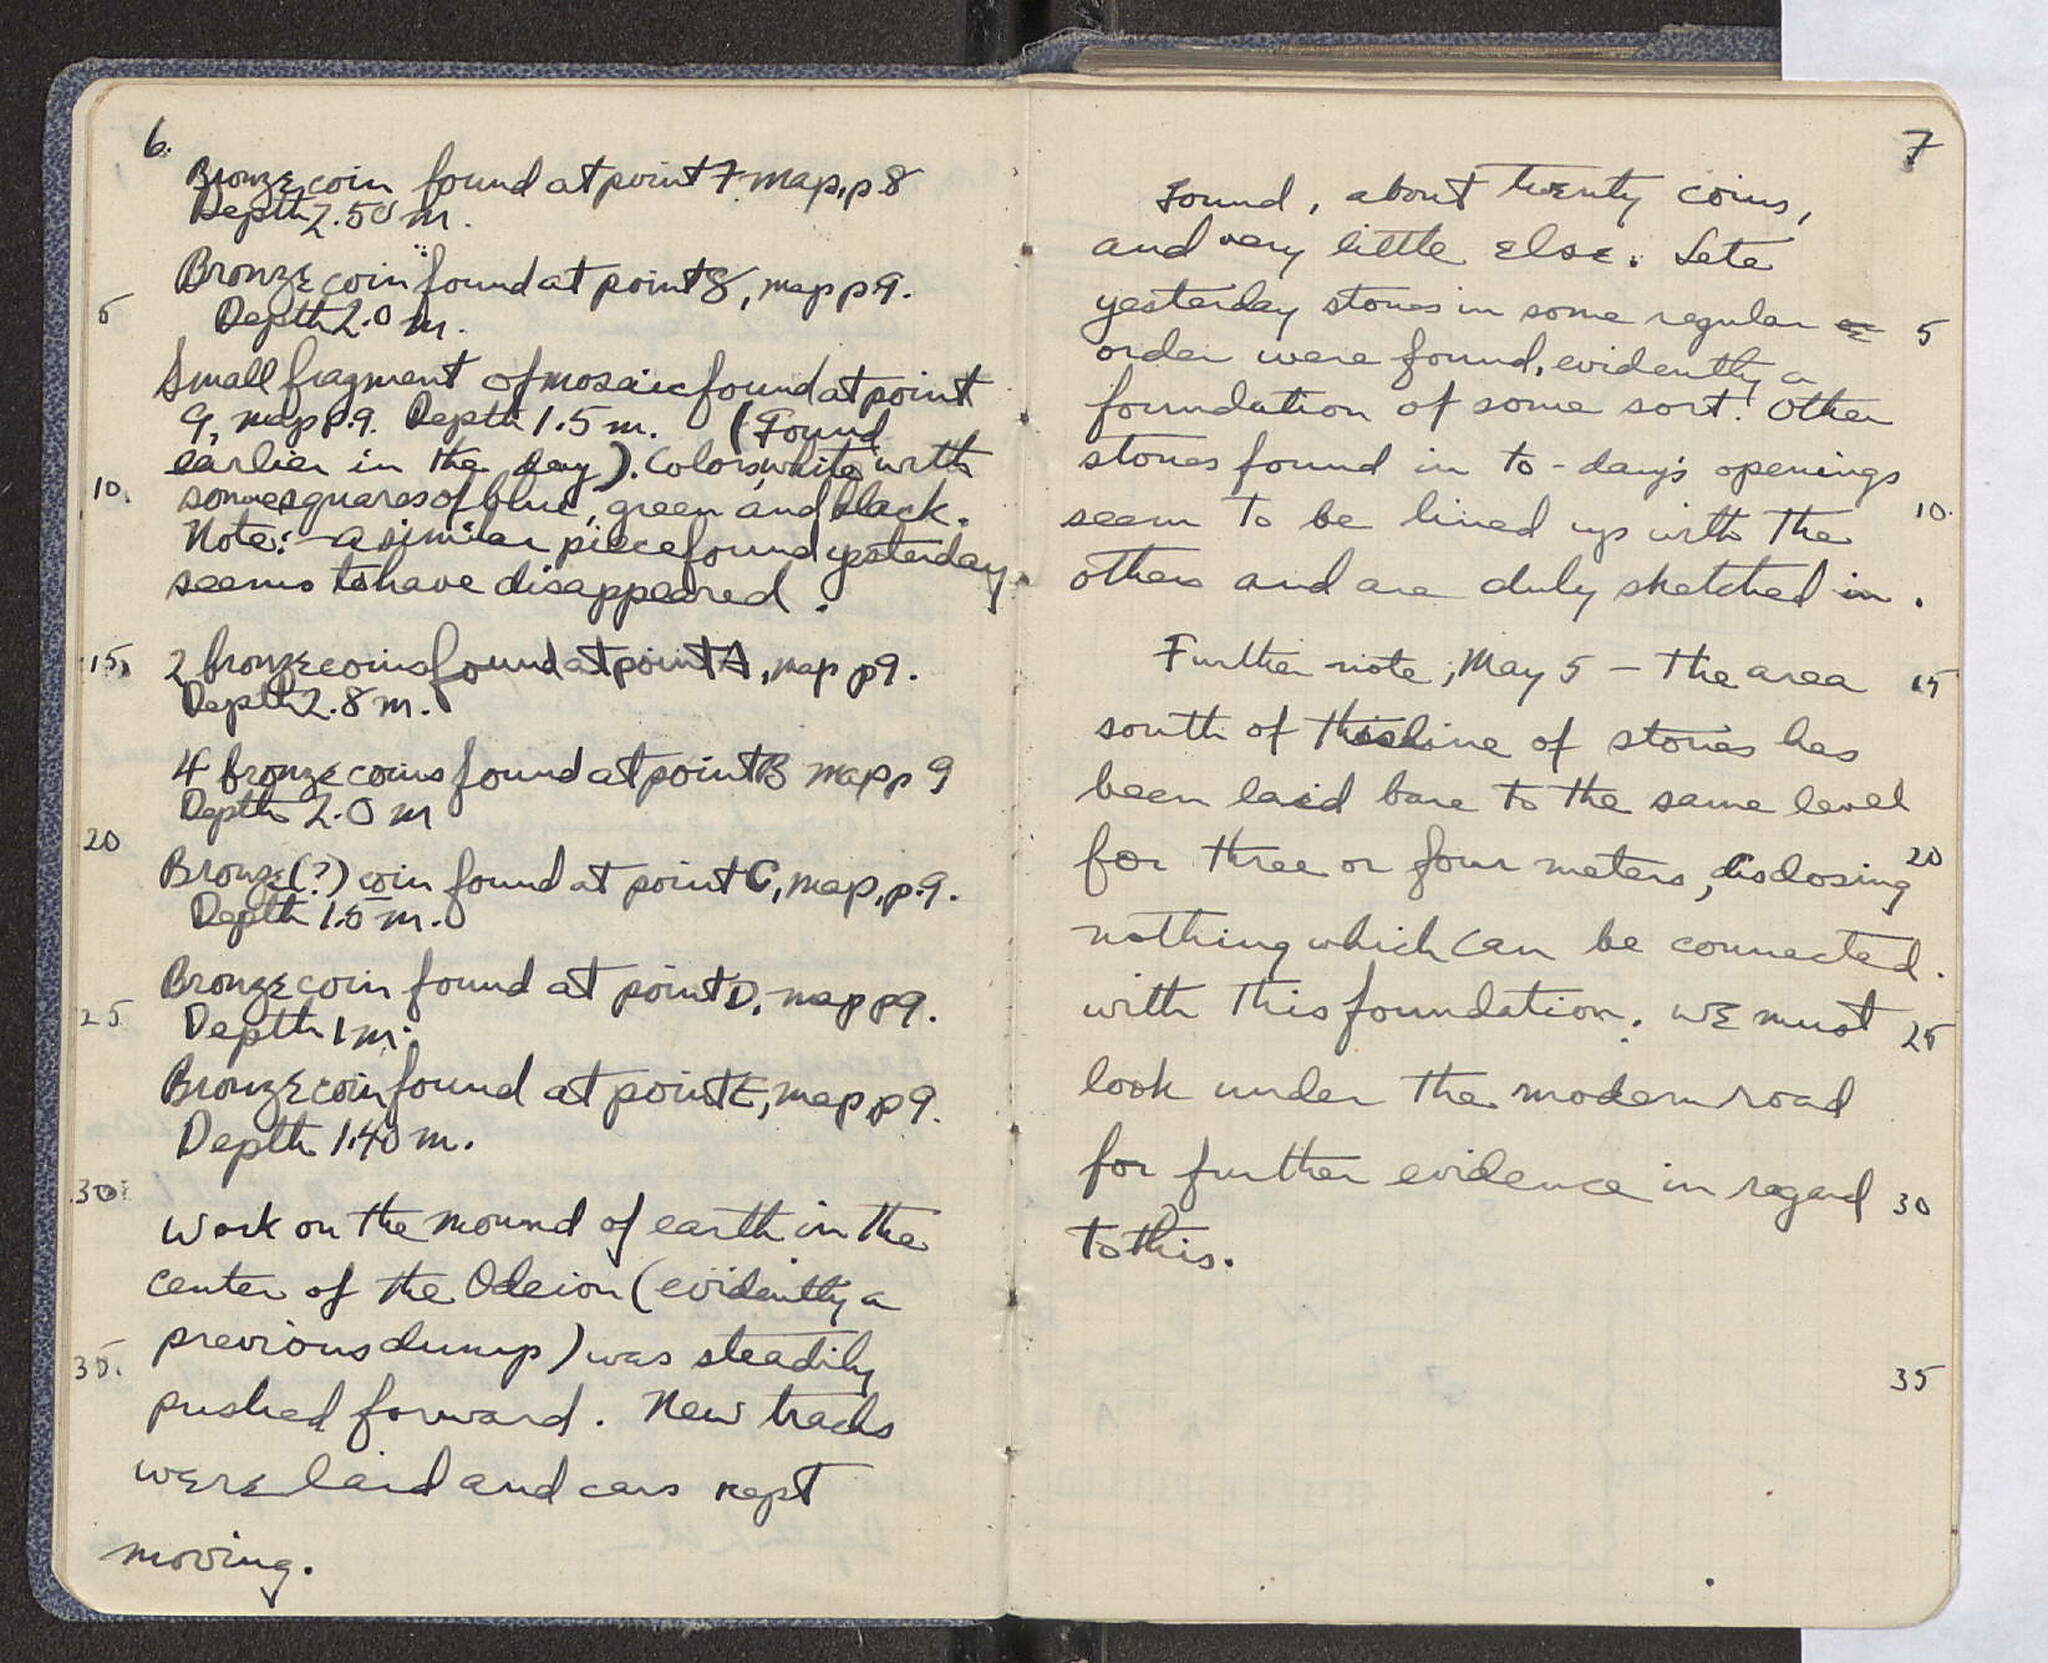 6.
Bronze coin found at point 7 map, p 8
Depth 2.50 m.
Bronze coin found at point 8, map p 9.
5
Depth 2.0 m.
Small fragment of mosaic found at point
9, map p. 9. Depth 1.5 m. (Found
earlier in the day). Colors, white with
10.
some squares of blue, green and black.
Note:- a similar piece found yesterday
seems to have disappeared.
15.
2 bronze coins found at point A, map p 9.
Depth 2.8 m.
4 bronze coins found at point B map p 9
Depth 2.0 m
20
Bronze (?) coin found at point C, map, p. 9.
Depth 1.5 m.
Bronze coin found at point D, map p 9.
25
Depth 1 m.
Bronze coin found at point E, map p 9.
Depth 1.40 m.
30
Work on the mound of earth in the
center of the Odeion (evidently a
previous dump) was steadily
35.
pushed forward. New tracks
were laid and cars kept
moving.
7
Found, about twenty coins,
and very little else. Late
yesterday stones in some regular
5
order were found, evidently a
foundation of some sort. Other
stones found in to-day's openings
seem to be lined up with the
10.
others and are duly sketched in.
Further note, May 5 - The area
15
south of this line of stones has
been laid bare to the same level
for three or four meters, disclosing
20
nothing which can be connected.
with this foundation. We must
25
look under the modern road
for further evidence in regard
30
to this.
35